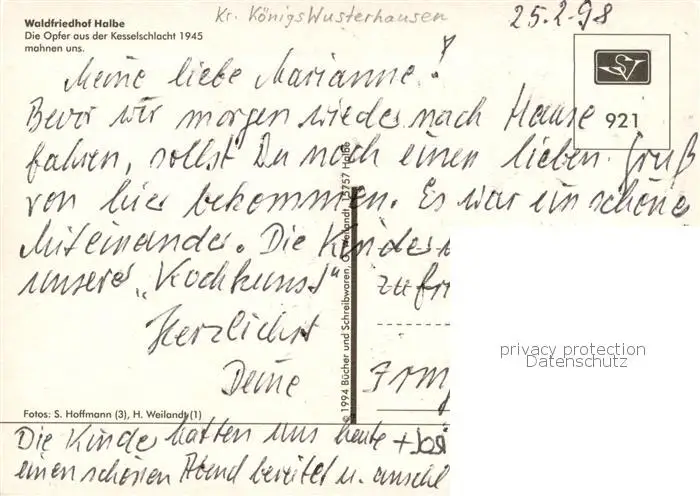 Waldfriedhof Halbe
Die Opfer aus der Kesselschlacht 1945
mahnen uns.
Kr. KönigsWusterhausen
25.2.98
921
Meine liebe Marianne!
Bevor wir morgen wieder nach Hause
fahren, sollst Du noch einen lieben Gruß
von hier bekommen. Es war ein schönes
Miteinander. Die Kinder
unserer „Kochkunst"
zufri
Herzlichst
Deine
Irmg
© 1994 Bücher und Schreibwaren, G. Weilandt, 15757 Halbe
privacy protection
Datenschutz
Fotos: S. Hoffmann (3), H. Weilandt (1)
Die Kinder hatten uns heute
einen schönen Abend bereitet u. anschl